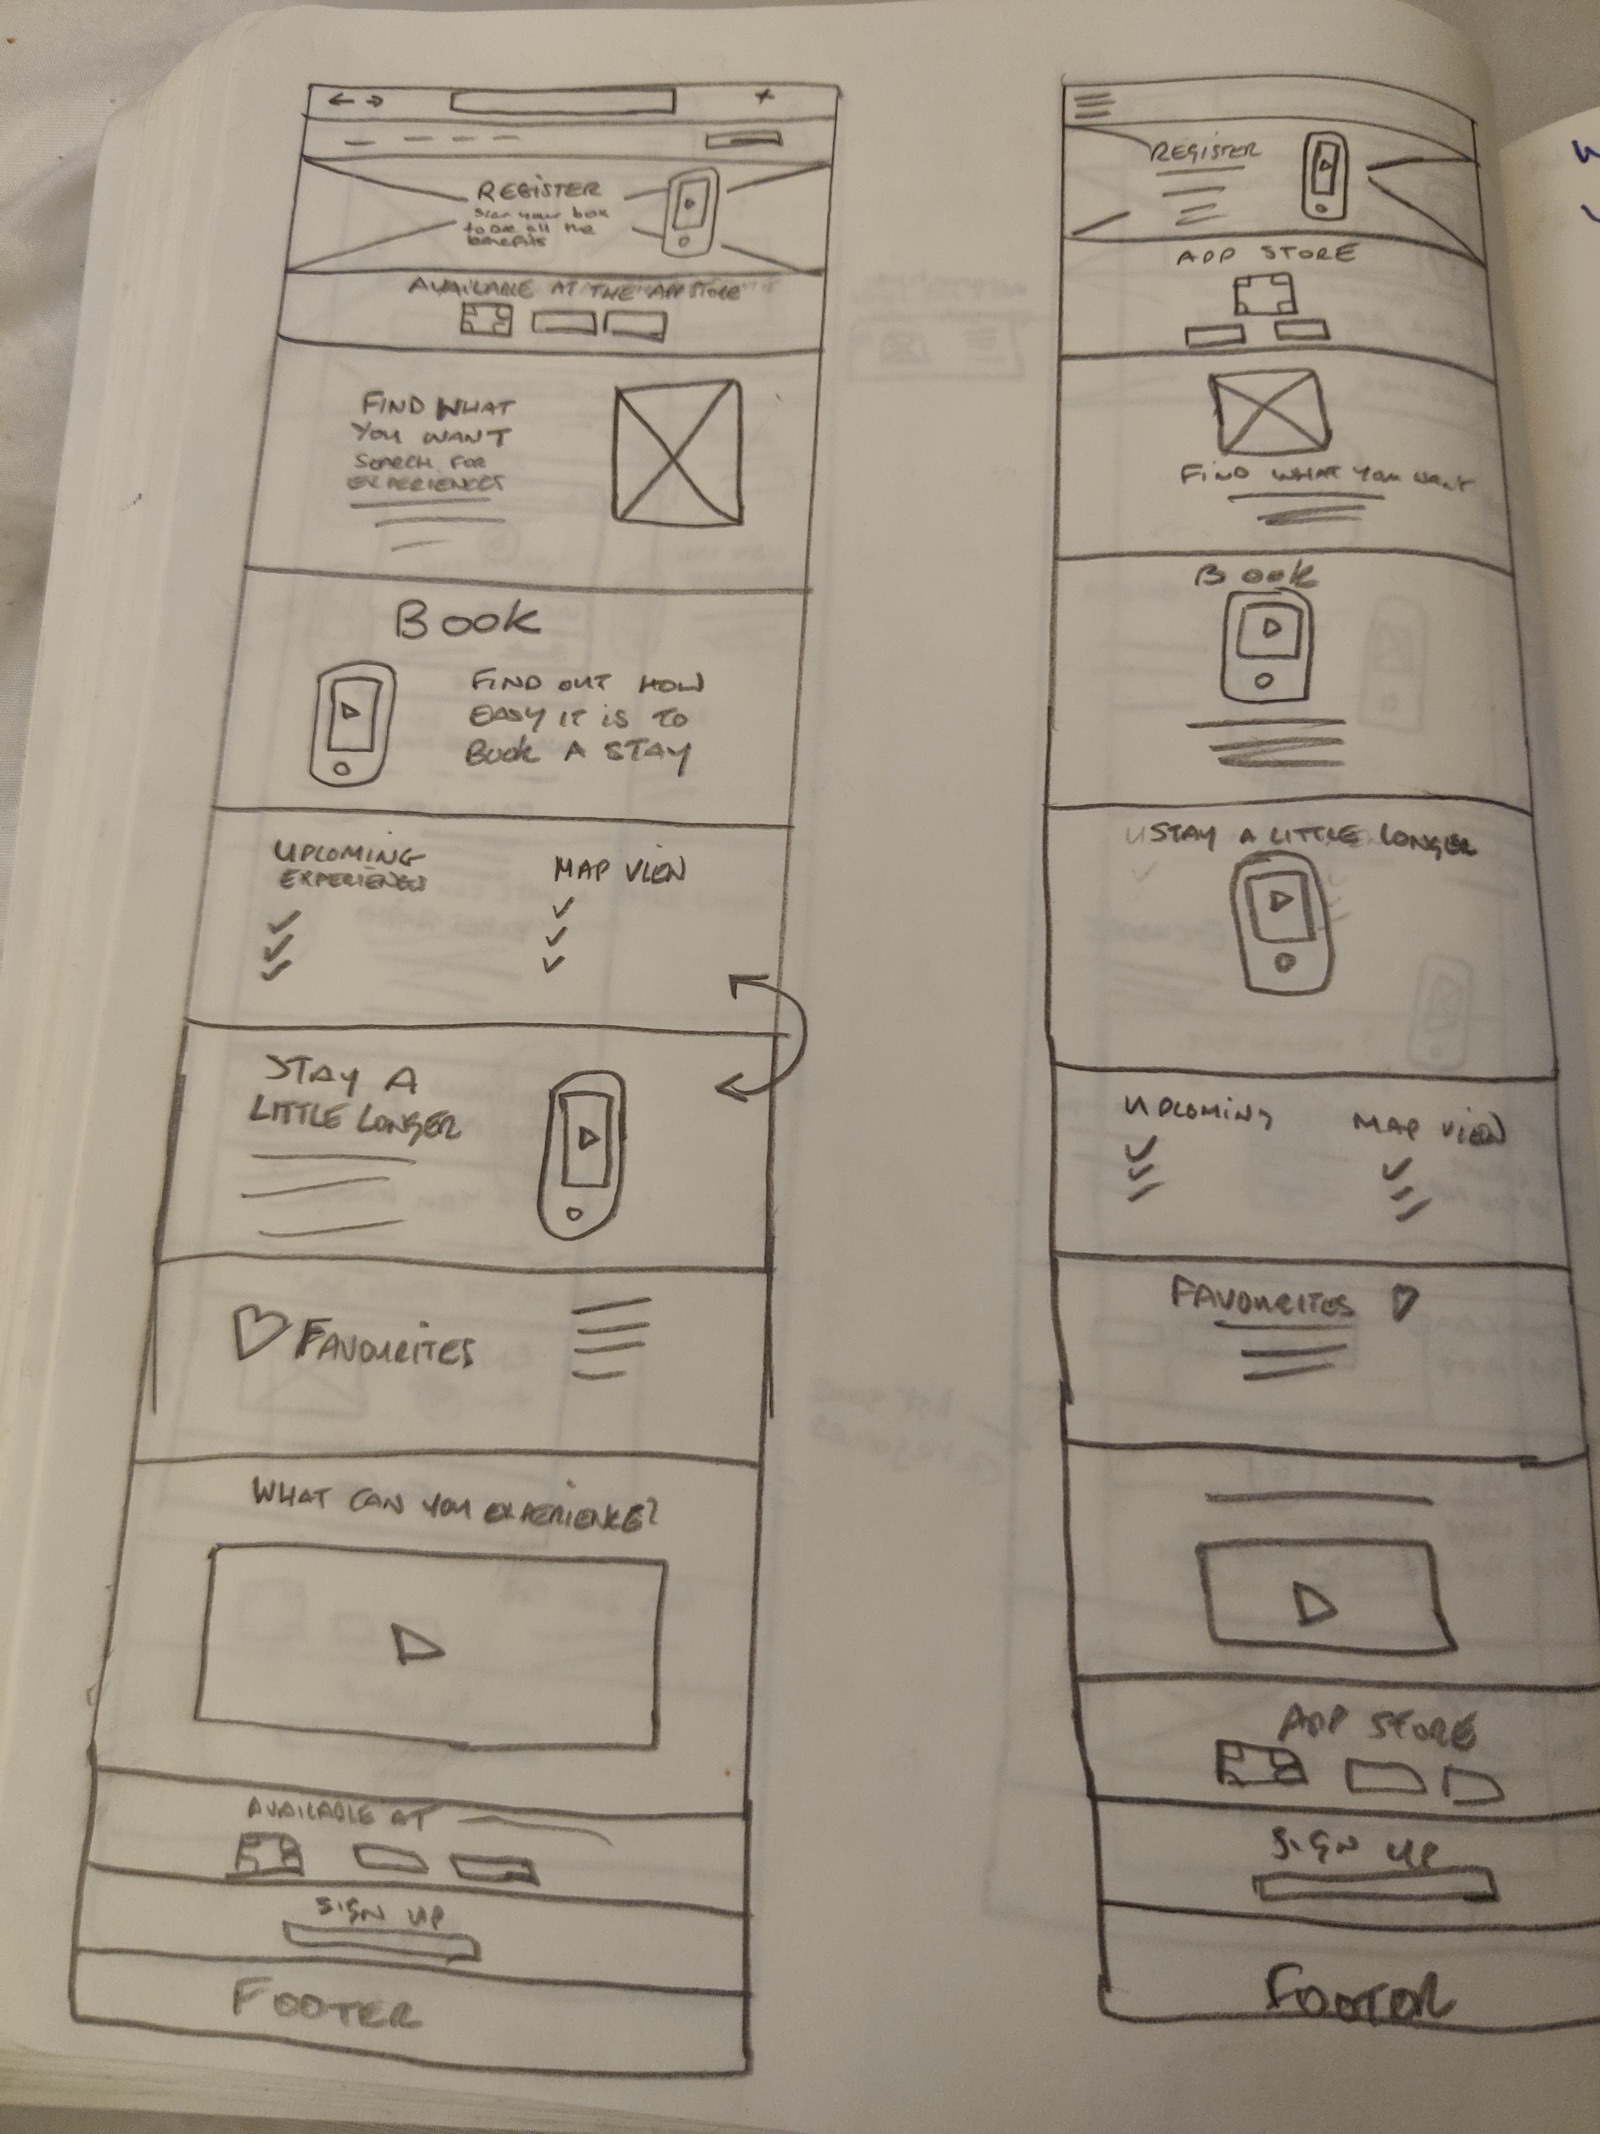 REGISTER
Scan your box
to see all the
benefits
AVAILABLE AT THE "APP STORE"
FIND WHAT
YOU WANT
SEARCH FOR
EXPERIENCES
BOOK
FIND OUT HOW
EASY IT IS TO
BOOK A STAY
UPCOMING
EXPERIENCES
MAP VIEW
STAY A
LITTLE LONGER
FAVOURITES
WHAT CAN YOU EXPERIENCE?
AVAILABLE AT
SIGN UP
FOOTER
REGISTER
APP STORE
FIND WHAT YOU WANT
BOOK
STAY A LITTLE LONGER
UPCOMING
MAP VIEW
FAVOURITES
APP STORE
SIGN UP
FOOTER